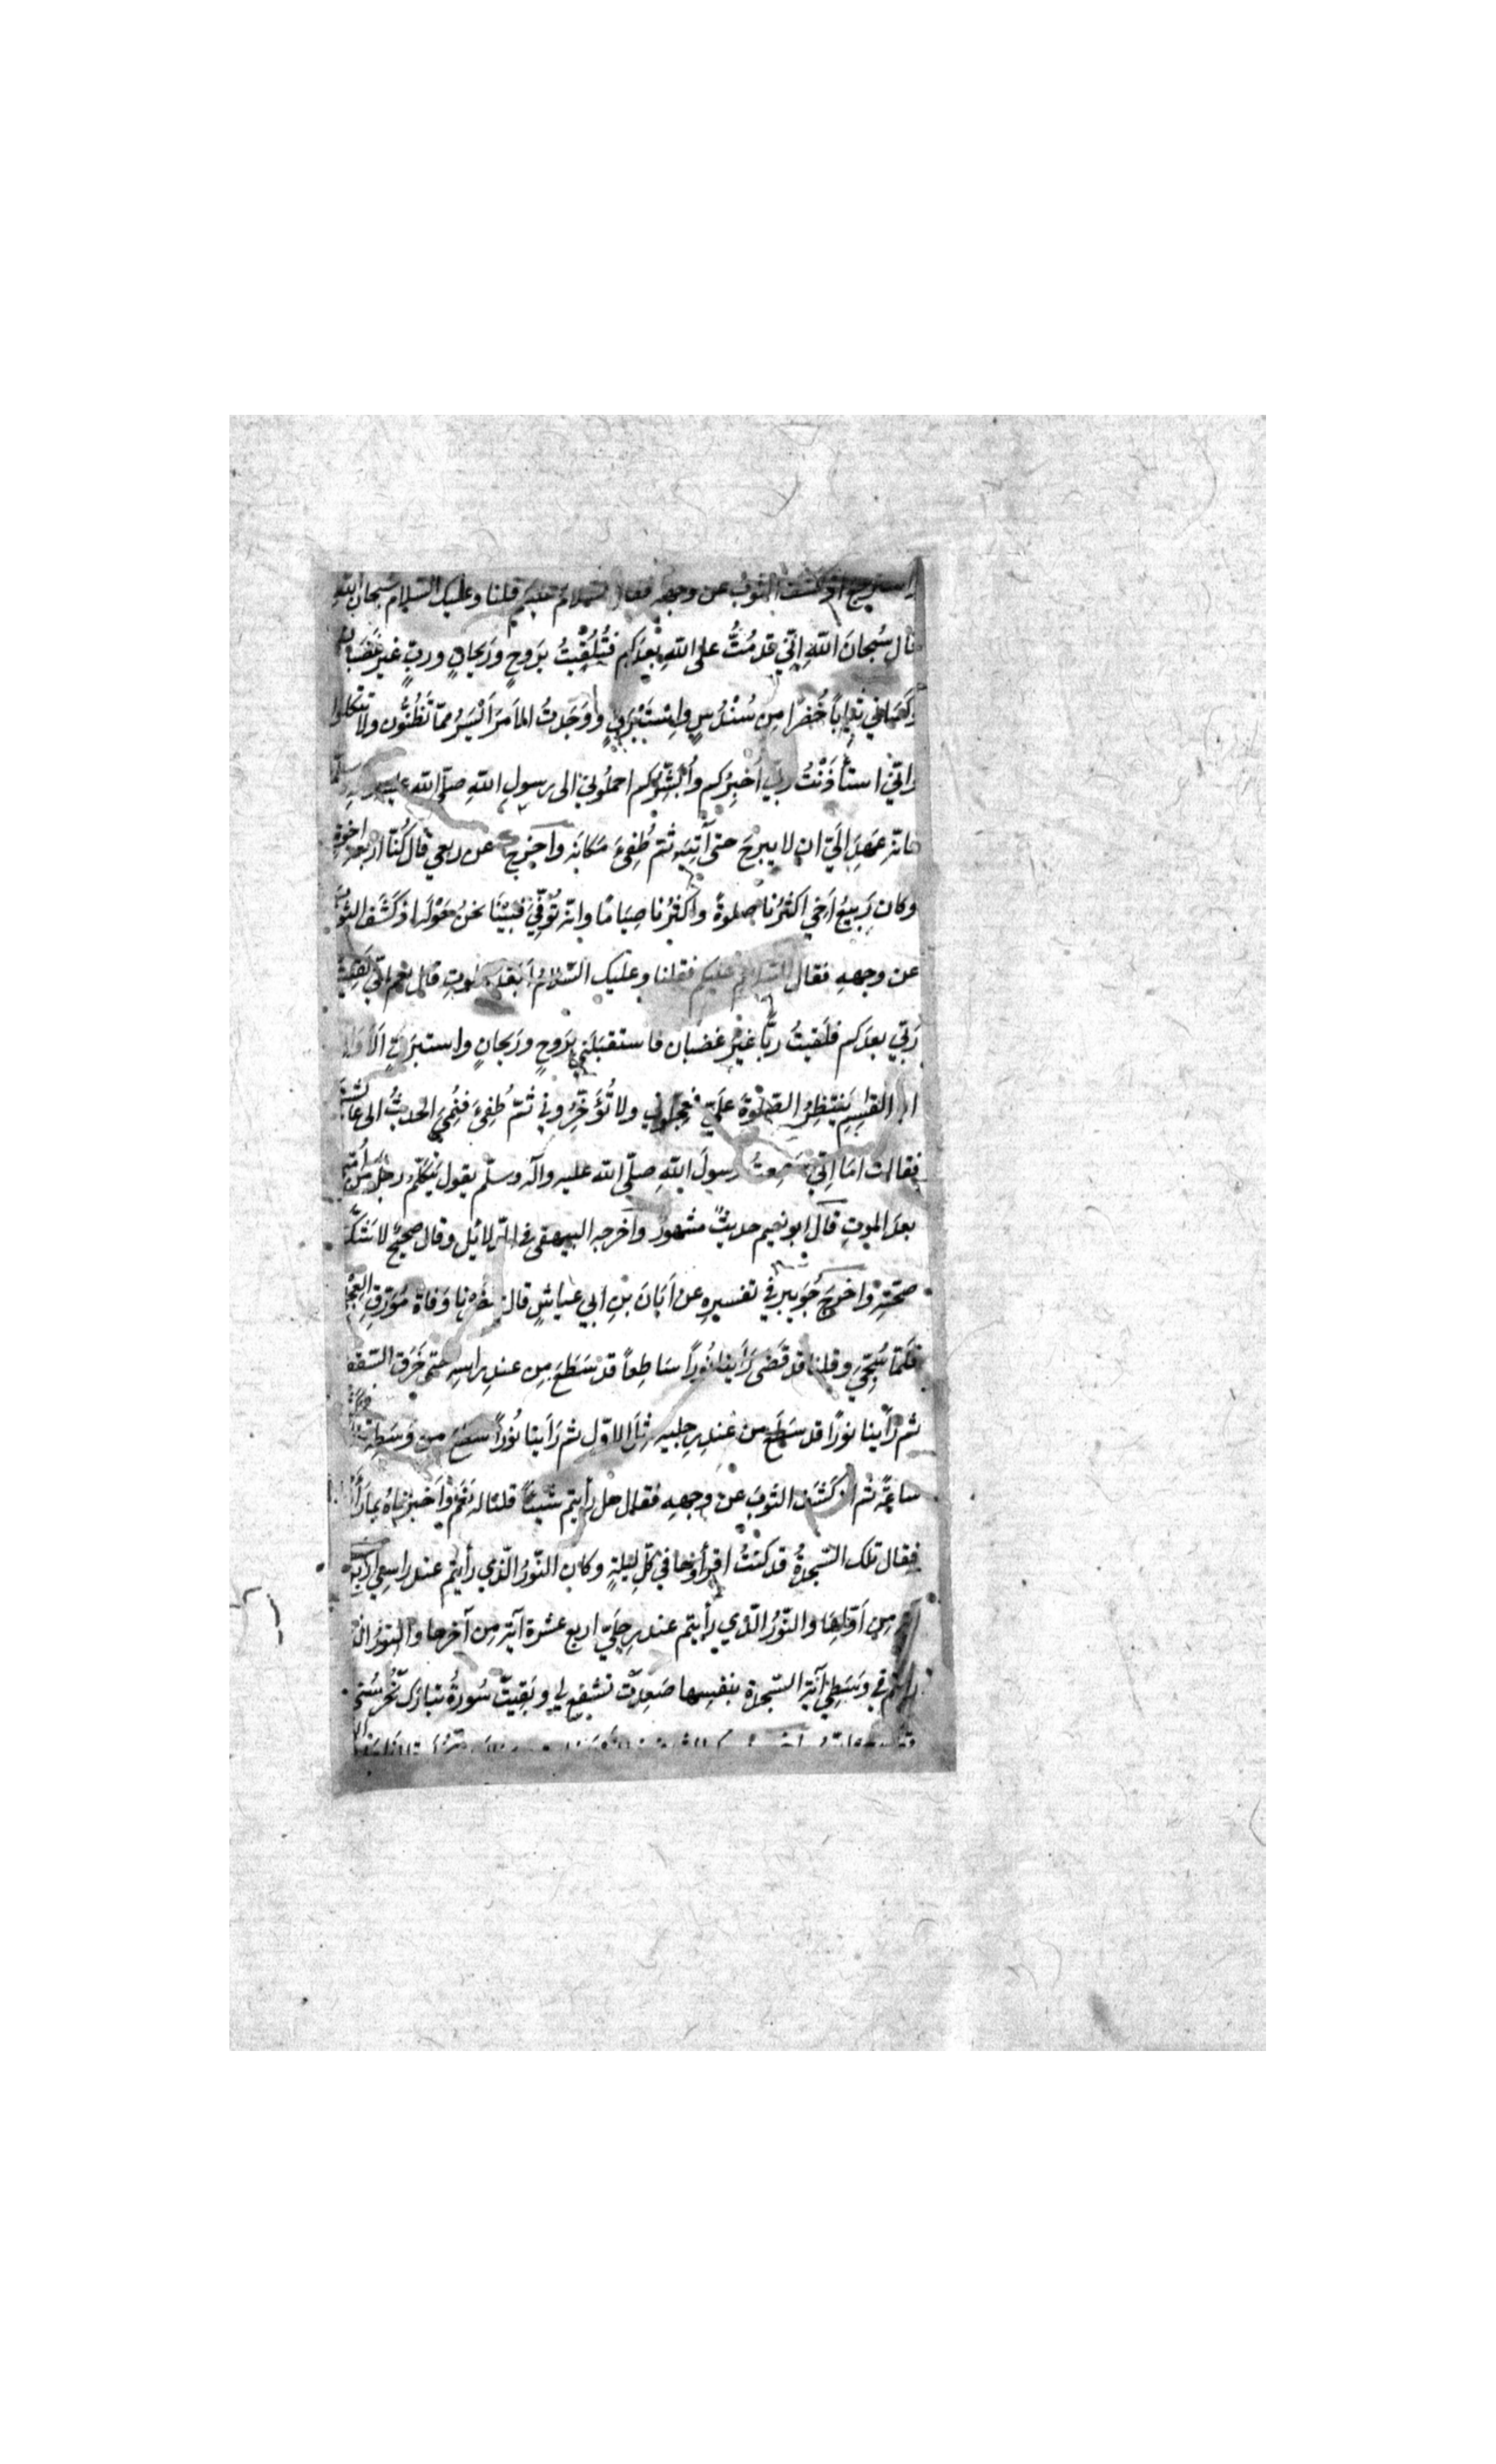 استرجع اذ كشف الثوب عن وجهه فقال السلام عليكم قلنا وعليك السلام سبحان الله
قال سُبحانَ اللهِ اِنّي قدمْتُ على اللهِ بعدَكم فتُلُقِّيتُ بِرَوحٍ ورَيحانٍ وربٍّ غيرِ غَضبان
وكَسَاني ثياباً خُضْرًا مِن سُنْدُسٍ واِسْتَبْرَقٍ ووَجَدتُ الاَمرَ اَيْسَرُ ممّا تَظُنُّون ولا تتّكلوا
واِنّي استأذَنْتُ ربّي اُخبِرُكم واُبشِّرُكم احملُوني الى رسولِ اللهِ صلّى الله عليه
فانه عَهِدَ اِلَيَّ ان لا يبرحَ حتى آتِيَه ثمّ طُفِئَ مَكانَه واخرج عن ربعي قال كُنّا اربعة اخوة
وكان رَبيعُ اَخي اكثرُنا صلوةً واكثرُنا صِيَامًا وانّه تُوُفِّيَ فبَيْنَا نحنُ حَوْلَه اذ كَشَفَ الثوبَ
عن وجههِ فقال السلام عليكم فقلنا وعليك السّلامُ اَبَعْدَ الموتِ قال نعم انّي لَقِيتُ
رَبّي بعدَكم فلَقيتُ ربًّا غيْرَ غَضبَان فاستقبَلَني بِرَوحٍ ورَيحانٍ واستبرَقٍ اَلَا وَاِنَّ
ابا القاسِمِ يَنتَظِرُ الصّلوةَ عَلَيَّ فعجّلوني ولا تُؤَخِّرُوني ثمّ طُفِئَ فنُمِيَ الحديثُ الى عائشة
فقالت امَا اِنّي سَمِعتُ رسولَ اللهِ صلّى الله عليه وآله وسلّم يقول يَتكَلَّمُ رجلٌ من اُمّتي
بعدَ الموتِ قال ابو نعيم حديثٌ مشهورٌ واخرجه البيهقى فى الدّلائل وقال صحيحٌ لا يَشكّ
صحّتِه واخرجَ جُوَيبِر في تفسيرِه عن اَبَانَ بنِ ابي عياشٍ قال حَضَرْنا وَفاةَ مُوَرِّقِ العِجْلي
فلَمّا سُجّيَ وقلنا قد قَضى رَأينا نُوراً سَاطِعاً قد سَطَعَ مِن عندِ راسِه حتى خَرَقَ السّقف
ثم رَأينا نورًا قد سَطَع من عندِ رِجليه مثلَ الاوّل ثم رَأينا نُوراً سطع من وَسَطِه فمكثنا
ساعةً ثم اِنّه كَشَفَ الثوبَ عن وجههِ فقال هل رأيتم شيئاً قلنا له نَعَمْ واَخبرنَاهُ بما رَأَينا
فقال تلك السّجدةُ قد كنتُ اقرأوها في كلّ ليلةٍ وكان النّورُ الّذي رأيتم عند راسِي اربع
آية من اَوّلِها والنّورُ الّذي رأيتم عند رِجلَيّ اربع عشرة آيةً مِن آخرها والنورُ الذى
رأيتم في وَسَطِي آيةُ السّجدة بنفسِها صَعِدَت تشفع لي وبَقِيَت سُورةُ تبارك تَحْرُسُني